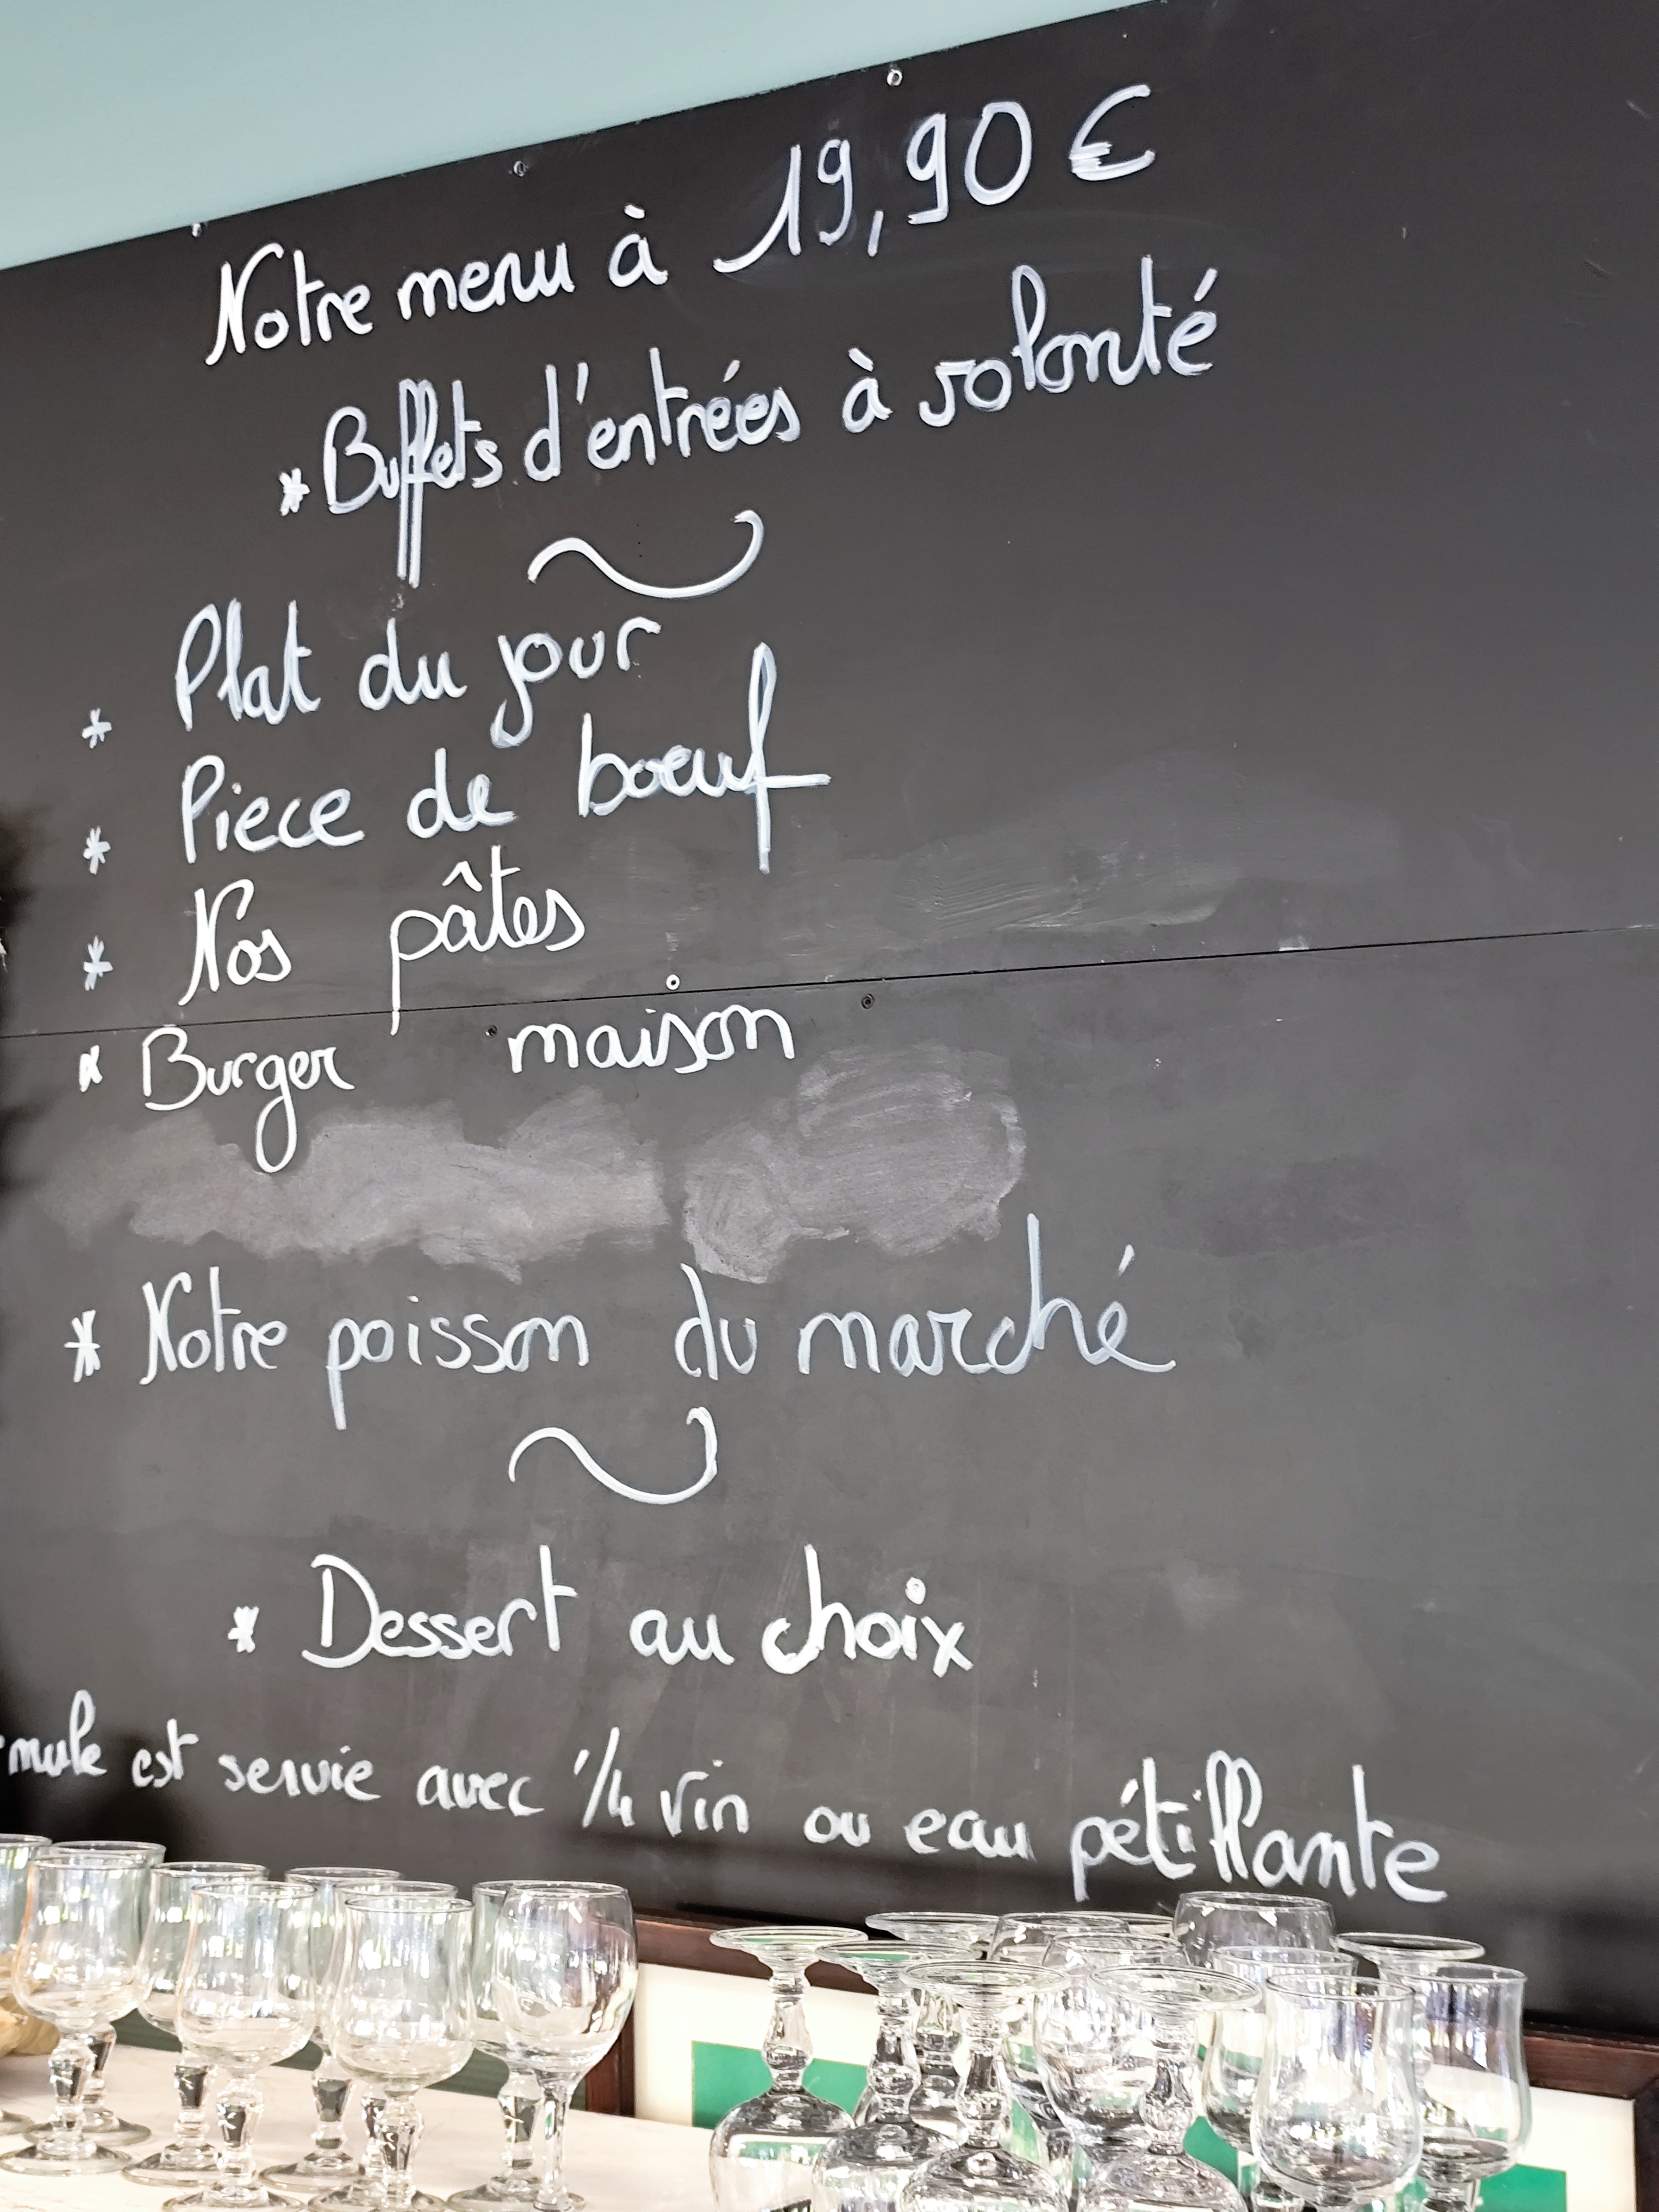 Notre menu à 19,90 €
* Buffets d'entrées à volonté
* Plat du jour
* Piece de boeuf
* Nos pâtes
* Burger maison
* Notre poisson du marché
* Dessert au choix
mule est servie avec 1/4 vin ou eau pétillante